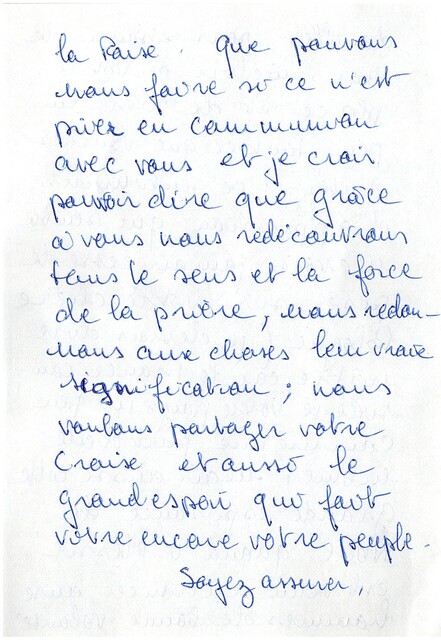 la Raise. Que pouvons
nous faire si ce n'est
prier en communion
avec vous et je crois
pouvoir dire que grâce
à vous nous redécouvrons
tous le sens et la force
de la prière, nous redon-
nons aux choses leur vraie
signification ; nous
voulons partager votre
Croise et aussi le
grand espoir qui fait
vivre encore votre peuple.
Soyez assurer,